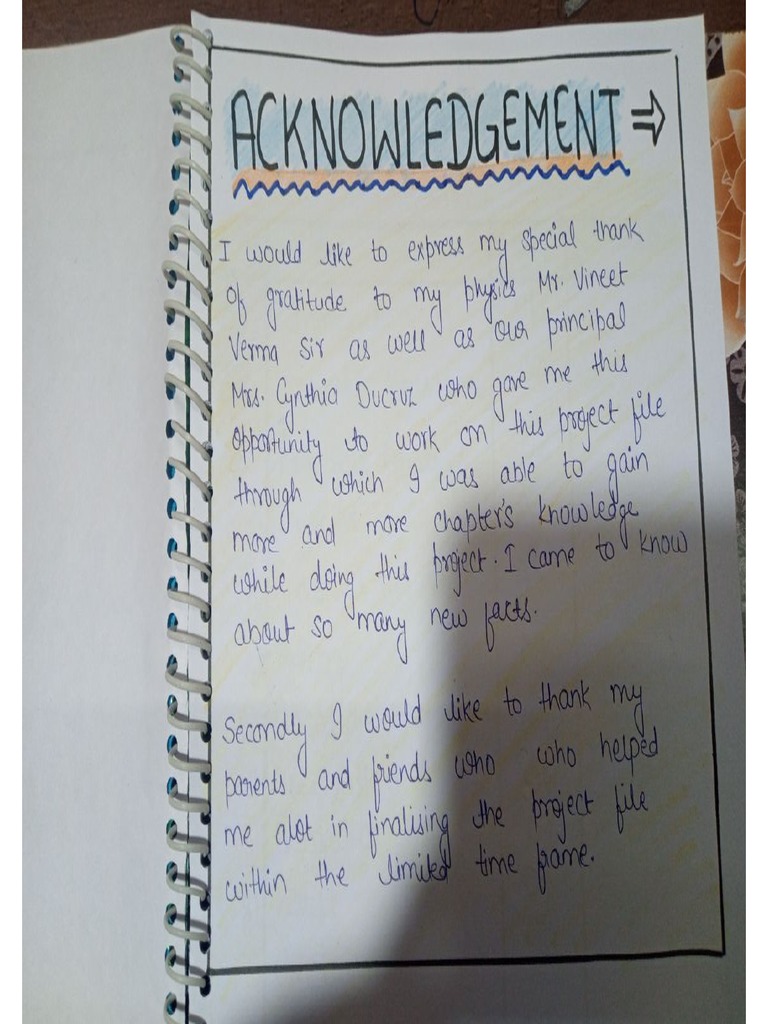 ACKNOWLEDGEMENT ⇒
I would like to express my special thank
of gratitude to my physics Mr. Vineet
Verma Sir as well as our principal
Mrs. Cynthia Ducruz who gave me this
opportunity to work on this project file
through which I was able to gain
more and more chapter's knowledge
while doing this project. I came to know
about so many new facts.
Secondly I would like to thank my
parents and friends who who helped
me alot in finalising the project file
within the limited time frame.